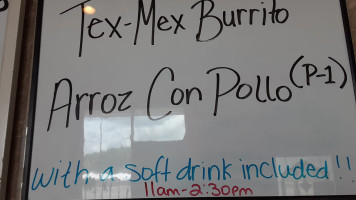 Tex-Mex Burrito
Arroz Con Pollo (P-1)
With a soft drink included!!
11am-2:30pm